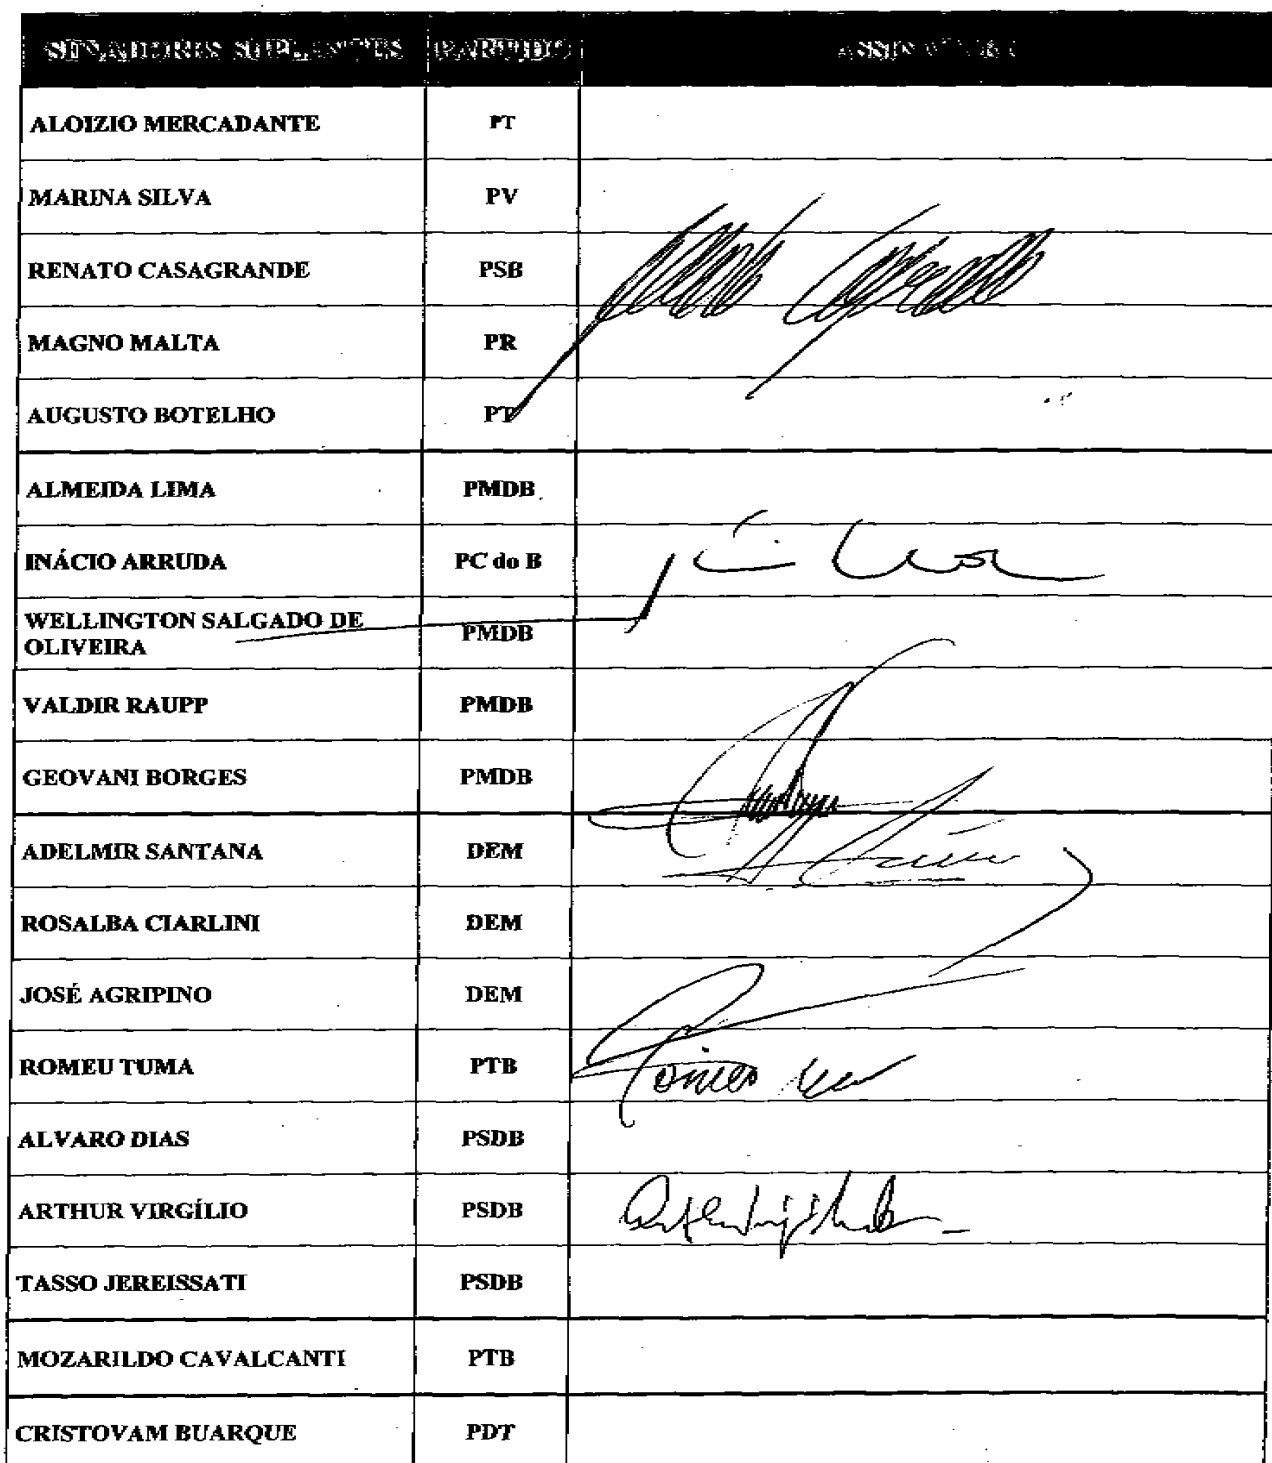 SENADORES SUPLENTES PARTIDO ASSINATURA
ALOIZIO MERCADANTE PT
MARINA SILVA PV
RENATO CASAGRANDE PSB
MAGNO MALTA PR
AUGUSTO BOTELHO PT
ALMEIDA LIMA PMDB
INÁCIO ARRUDA PC do B
WELLINGTON SALGADO DE
OLIVEIRA PMDB
VALDIR RAUPP PMDB
GEOVANI BORGES PMDB
ADELMIR SANTANA DEM
ROSALBA CIARLINI DEM
JOSÉ AGRIPINO DEM
ROMEU TUMA PTB
ALVARO DIAS PSDB
ARTHUR VIRGÍLIO PSDB
TASSO JEREISSATI PSDB
MOZARILDO CAVALCANTI PTB
CRISTOVAM BUARQUE PDT